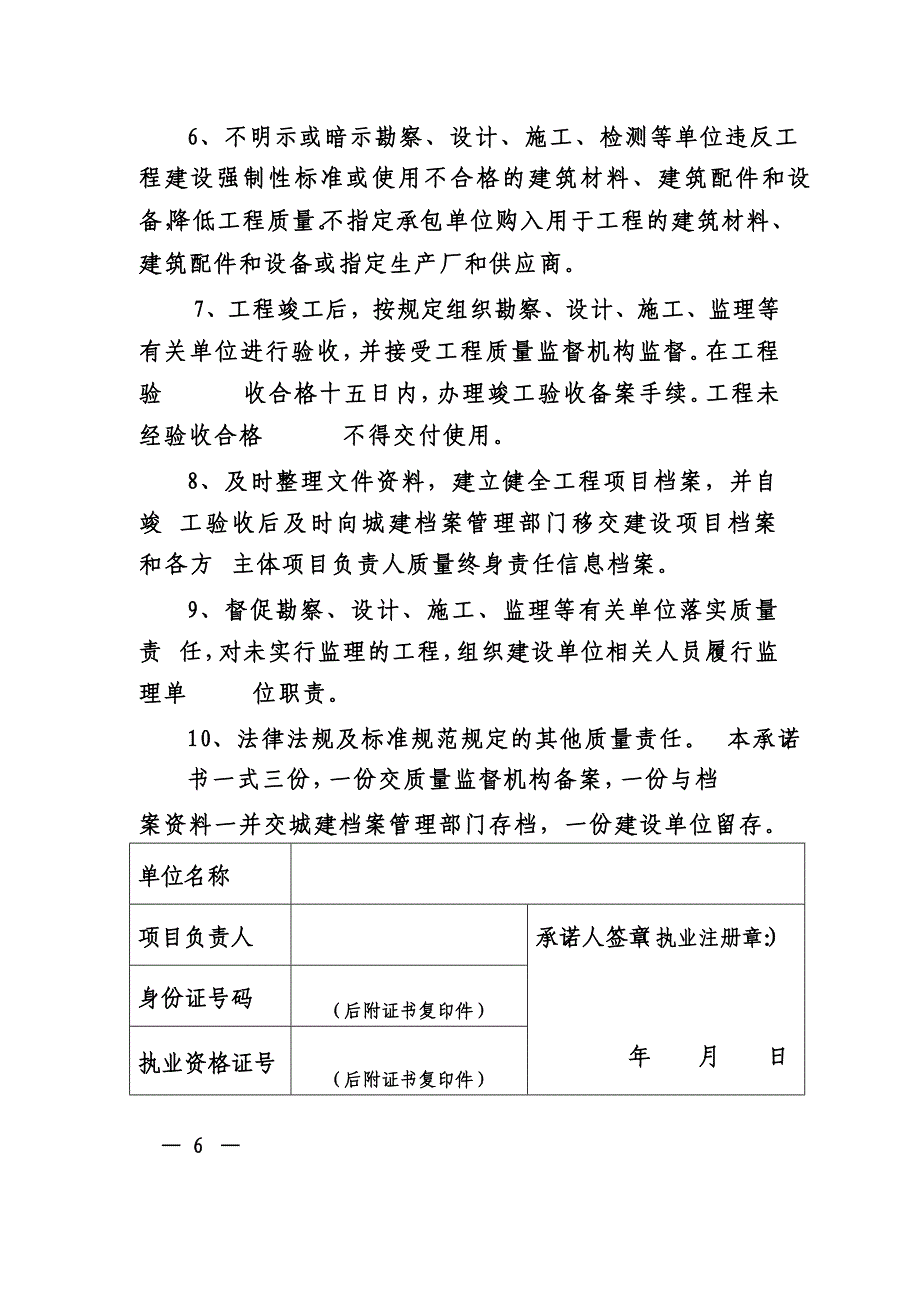 6、不明示或暗示勘察、设计、施工、检测等单位违反工
程建设强制性标准或使用不合格的建筑材料、建筑配件和设
备,降低工程质量。不指定承包单位购入用于工程的建筑材料、
建筑配件和设备或指定生产厂和供应商。
7、工程竣工后，按规定组织勘察、设计、施工、监理等
有关单位进行验收,并接受工程质量监督机构监督。在工程
验 收合格十五日内,办理竣工验收备案手续。工程未
经验收合格 不得交付使用。
8、及时整理文件资料，建立健全工程项目档案，并自
竣 工验收后及时向城建档案管理部门移交建设项目档案
和各方 主体项目负责人质量终身责任信息档案。
9、督促勘察、设计、施工、监理等有关单位落实质量
责 任,对未实行监理的工程,组织建设单位相关人员履行监
理单 位职责。
10、法律法规及标准规范规定的其他质量责任。 本承诺
书一式三份,一份交质量监督机构备案,一份与档
案资料一并交城建档案管理部门存档，一份建设单位留存。
单位名称
项目负责人
承诺人签章(执业注册章:)
身份证号码
(后附证书复印件)
执业资格证号
(后附证书复印件)
年 月 日
— 6 —